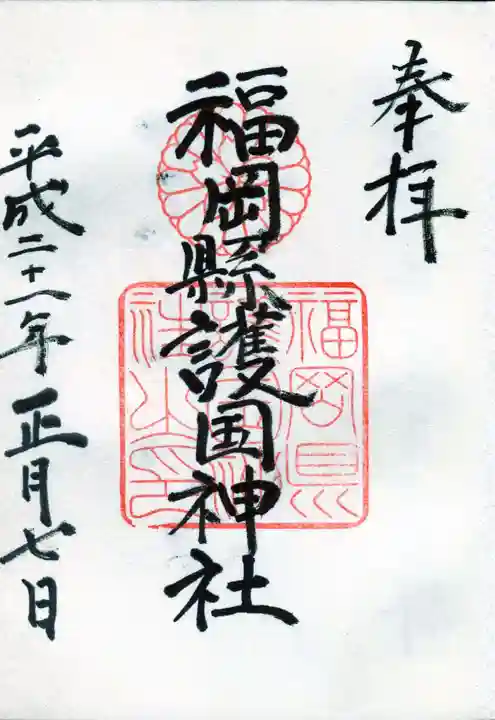 奉拝
福岡縣護国神社
平成二十一年正月七日
福岡県護国神社之印